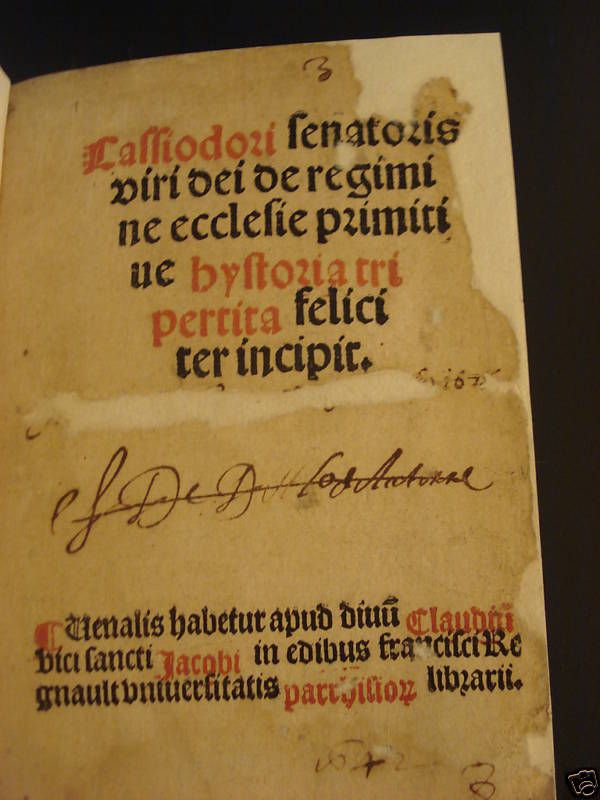 3
Cassiodori senatoris
viri dei de regimi
ne ecclesie primiti
ue hystoria tri
pertita felici
ter incipit.
De
Uenalis habetur apud diuū Claudiū
vici sancti Jacobi in edibus francisci Re
gnault vniuersitatis parrhisioꝝ librarii.
3